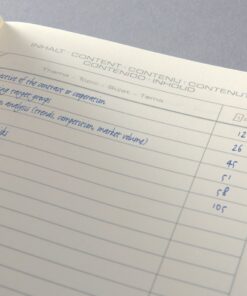 INHALT · CONTENT · CONTENU · CONTENUT
CONTENIDO · INHOLID
Thema · Topic · Sujet · Tema
of the contract or cooperation 12
target groups 26
analysis (trends, competition, market volume) 45
51
58
105